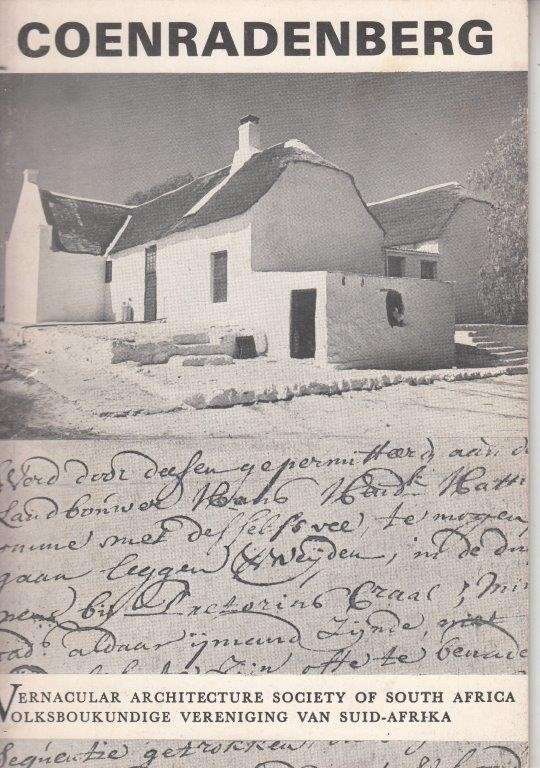 COENRADENBERG
Word door deesen gepermitteerd aan d
Landbouwer Hans Hendk Hatt
omme met desselfs vee, te mogen
gaan leggen & Weijden, in de
bij Pretorius Craal;
aldaar ijmand Zijnde, niet
Zijn ofte te bena
VERNACULAR ARCHITECTURE SOCIETY OF SOUTH AFRICA
VOLKSBOUKUNDIGE VERENIGING VAN SUID-AFRIKA
Sequentie getrokken